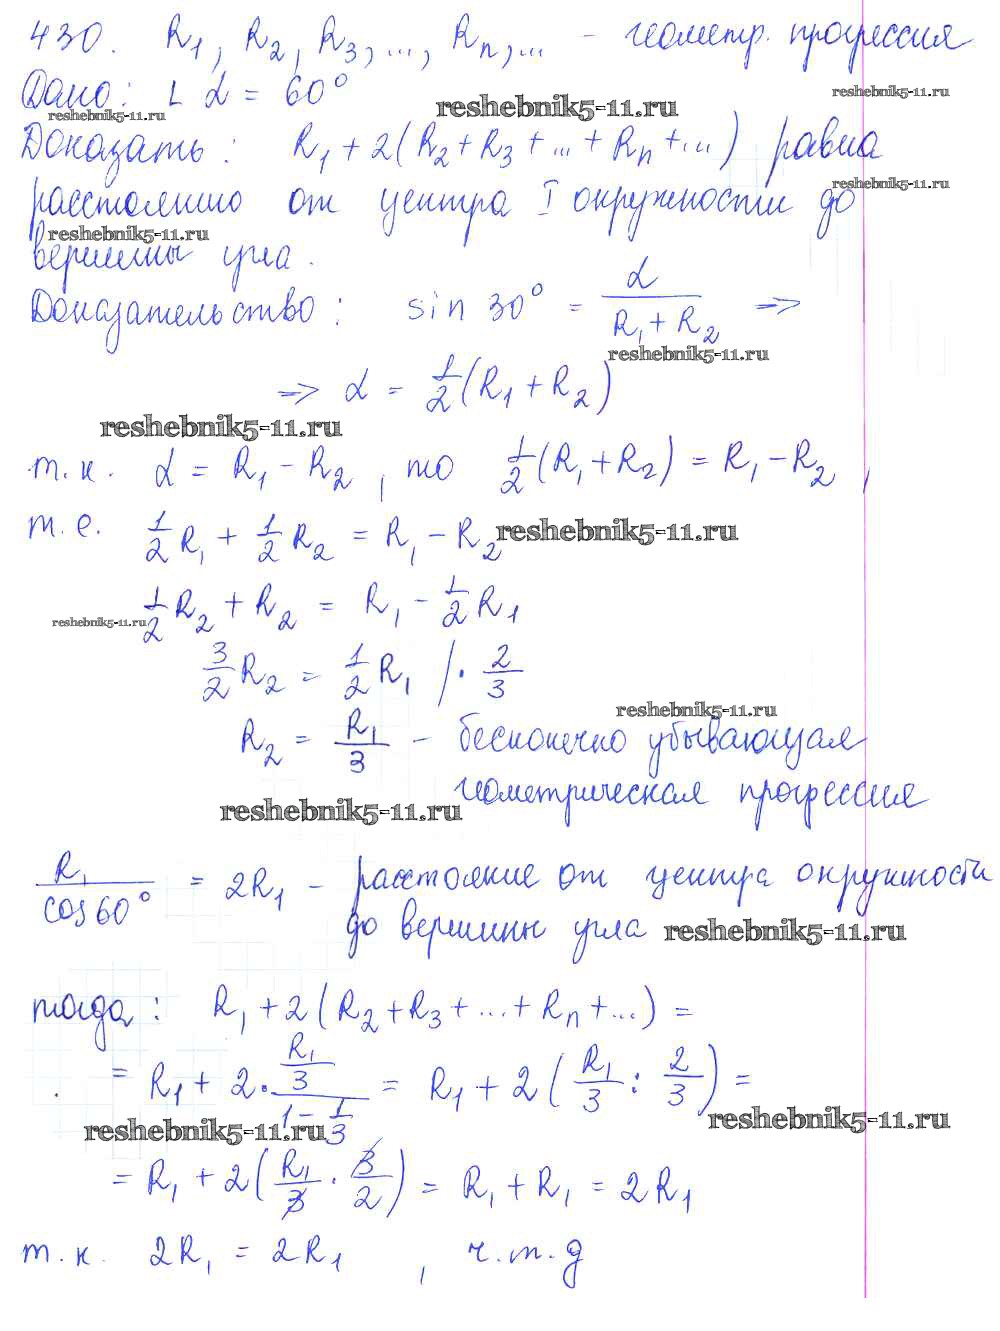 430. R₁, R₂, R₃, ..., Rₙ, ... - геометр. прогрессия
Дано: ∟ α = 60°
reshebnik5-11.ru reshebnik5-11.ru reshebnik5-11.ru
Доказать: R₁ + 2(R₂ + R₃ + ... + Rₙ + ...) равна
расстоянию от центра I окружности до
reshebnik5-11.ru reshebnik5-11.ru
вершины угла.
Доказательство: sin 30° = α/(R₁ + R₂) =>
reshebnik5-11.ru
=> α = 1/2(R₁ + R₂)
reshebnik5-11.ru
т.к. α = R₁ - R₂, то 1/2(R₁ + R₂) = R₁ - R₂,
т.е. 1/2 R₁ + 1/2 R₂ = R₁ - R₂ reshebnik5-11.ru
1/2 R₂ + R₂ = R₁ - 1/2 R₁
reshebnik5-11.ru
3/2 R₂ = 1/2 R₁ | · 2/3
reshebnik5-11.ru
R₂ = R₁/3 - бесконечно убывающая
геометрическая прогрессия
reshebnik5-11.ru
R₁/cos 60° = 2R₁ - расстояние от центра окружности
до вершины угла reshebnik5-11.ru
тогда: R₁ + 2(R₂ + R₃ + ... + Rₙ + ...) =
= R₁ + 2 · (R₁/3)/(1 - 1/3) = R₁ + 2(R₁/3 : 2/3) =
reshebnik5-11.ru reshebnik5-11.ru
= R₁ + 2(R₁/3 · 3/2) = R₁ + R₁ = 2R₁
т.к. 2R₁ = 2R₁, ч.т.д